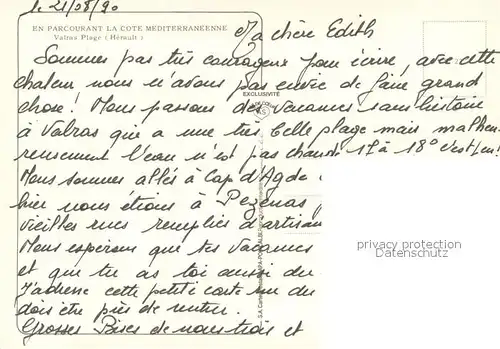 le 21/08/90
EN PARCOURANT LA COTE MEDITERRANÉENNE
Valras Plage (Hérault)
Ma chère Edith
Sommes pas très courageux pour écrire, avec cette
chaleur nous n'avons pas envie de faire grand
chose! Nous passons des vacances sans histoire
à Valras qui a une très belle plage mais malheu-
reusement l'eau n'est pas chaude 17 à 18° c'est peu!
Nous sommes allés à Cap d'Agde
hier nous étions à Pezenas
vieilles rues remplies d'artisan
Nous espérons que tes vacances
et que tu as toi aussi du
J'adresse cette petite carte sur du
dois être près de
Grosses Bises de nous trois et
EXCLUSIVITÉ
privacy protection
Datenschutz